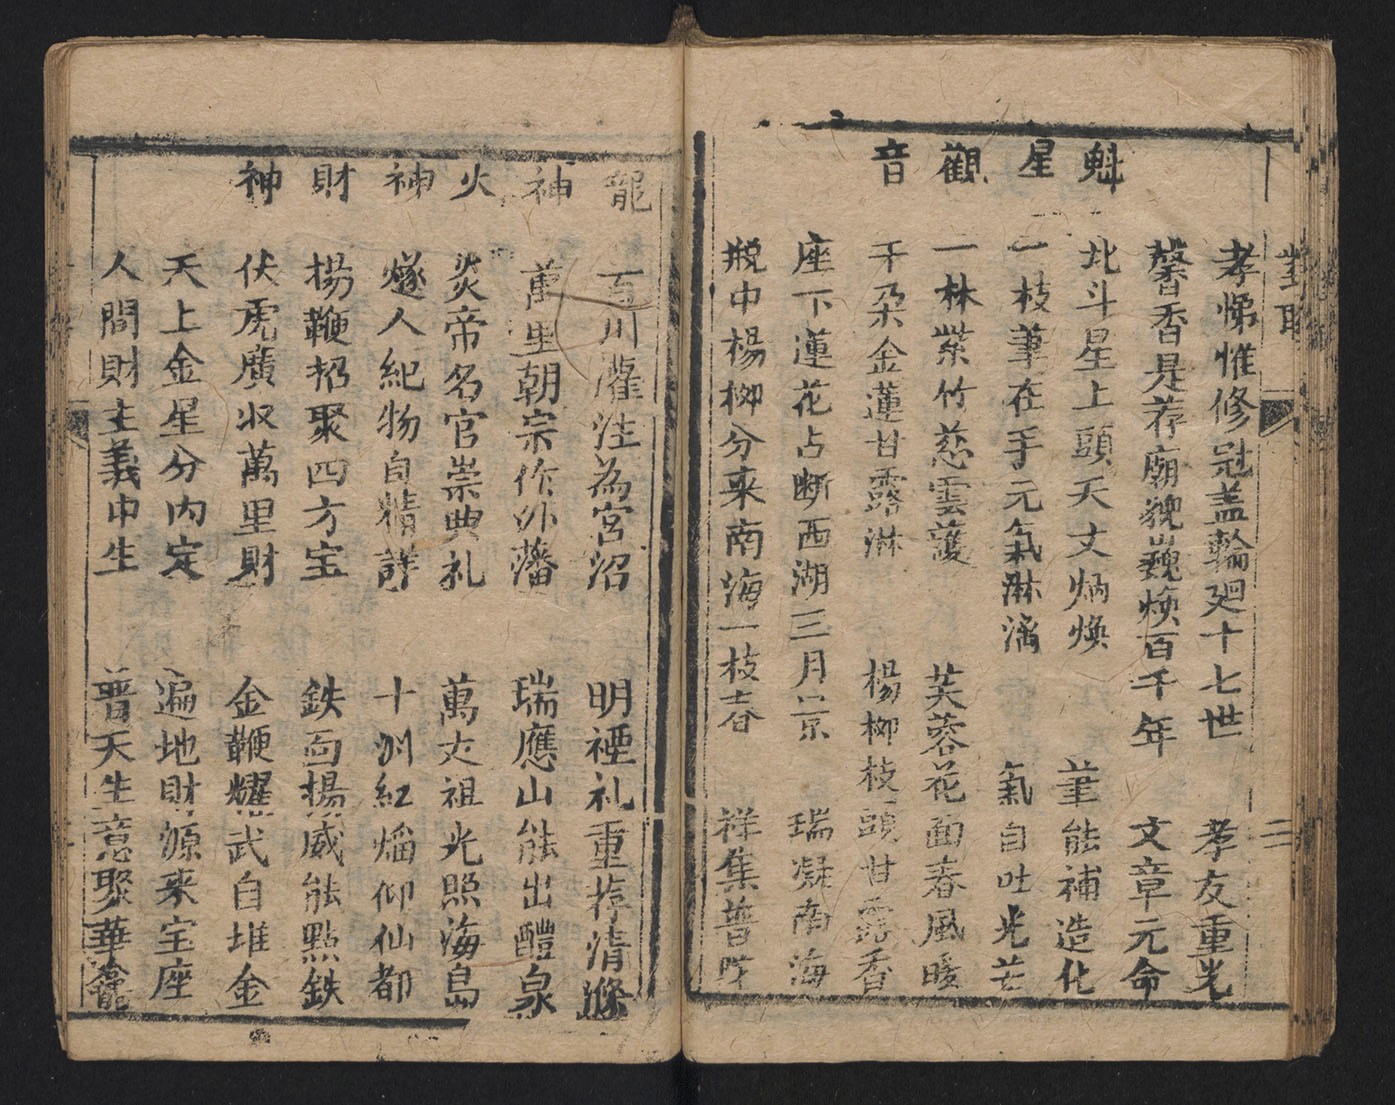 對聯
二
孝悌惟修冠盖輪廻十七世 孝友重光
馨香是荐廟貌巍煥百千年 文章元命
魁 北斗星上頭天文炳煥 筆能補造化
星 一枝筆在手元氣淋漓 氣自吐光芒
觀 一林紫竹慈雲護 芙蓉花面春風暖
音 千朵金蓮甘露淋 楊柳枝頭甘露香
座下蓮花占断西湖三月景 瑞凝南海
瓶中楊柳分来南海一枝春 祥集普陀
龍 百川灌注為宮沼 明禋礼重荐清滌
神 萬里朝宗作外藩 瑞應山能出醴泉
火 炎帝名官崇典礼 萬丈祖光照海島
神 燧人紀物自精詳 十洲紅熖仰仙都
財 揚鞭招聚四方宝 鉄面揚威能點鉄
神 伏虎廣収萬里財 金鞭耀武自堆金
天上金星分内定 遍地財源来宝座
人間財主義中生 普天生意聚華龕